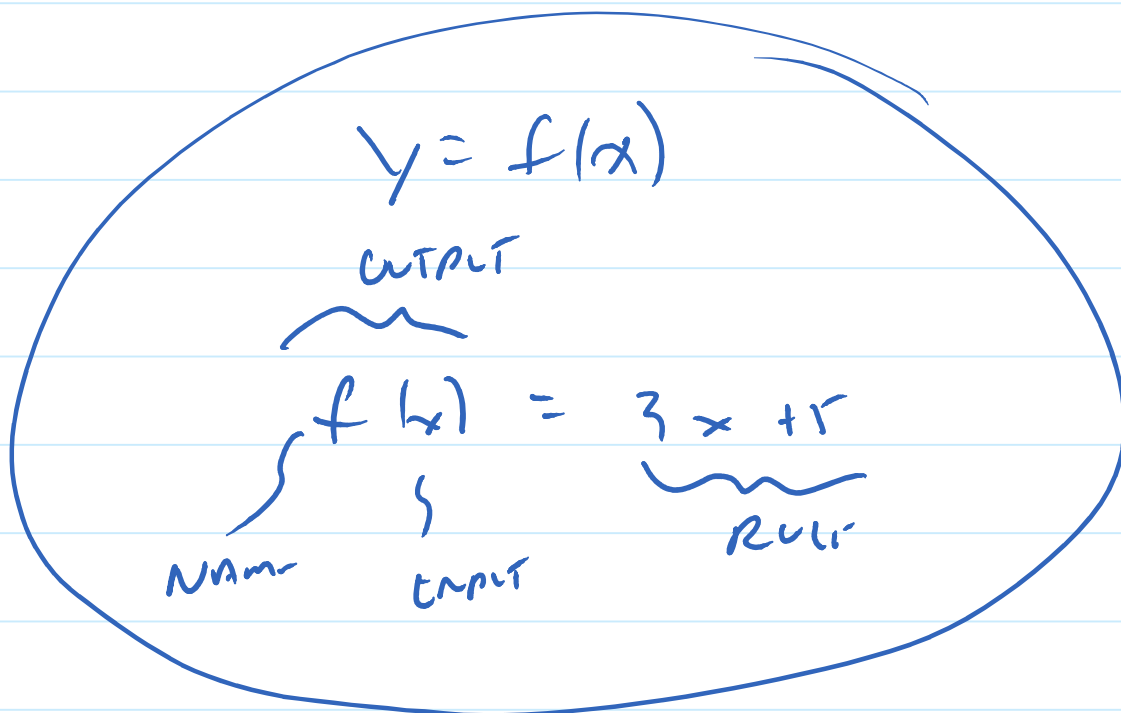 y = f(x)
OUTPUT
f(x) = 3x + 5
NAME INPUT RULE